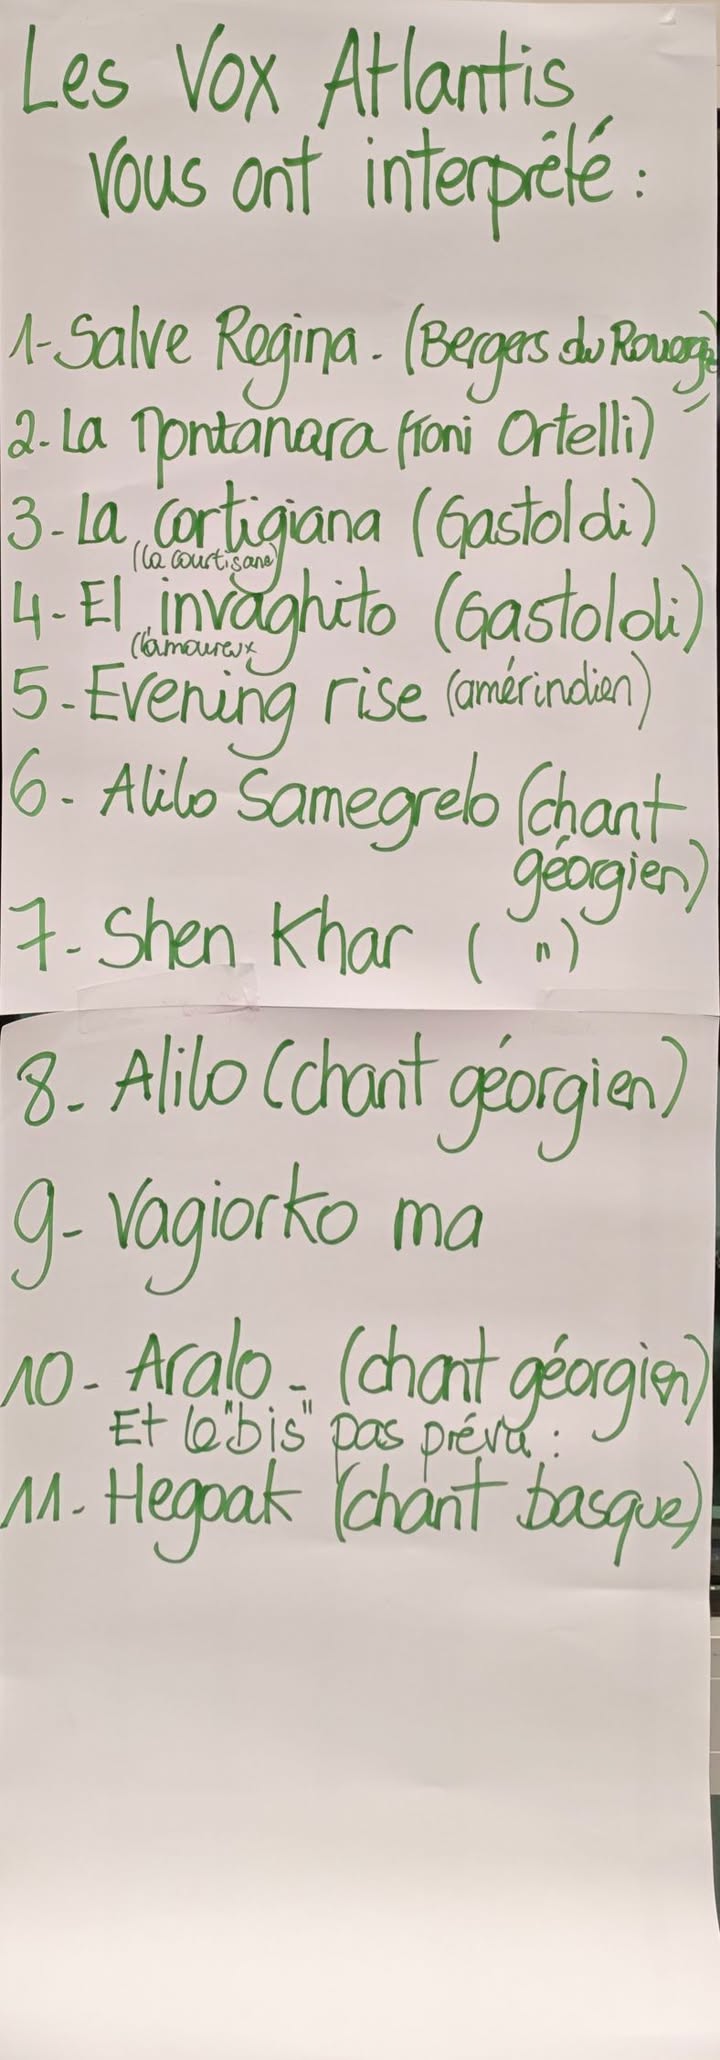 Les Vox Atlantis
vous ont interprété :
1- Salve Regina - (Bergers du Rouergue)
2- La Montanara (Toni Ortelli)
3- La cortigiana (Gastoldi)
(la courtisane)
4- El invaghito (Gastoldi)
(l'amoureux
5- Evening rise (amérindien)
6- Alilo Samegrelo (chant
géorgien)
7- Shen Khar ( " )
8- Alilo (chant géorgien)
9- Vagiorko ma
10- Aralo - (chant géorgien)
Et le "bis" pas prévu :
11- Hegoak (chant basque)